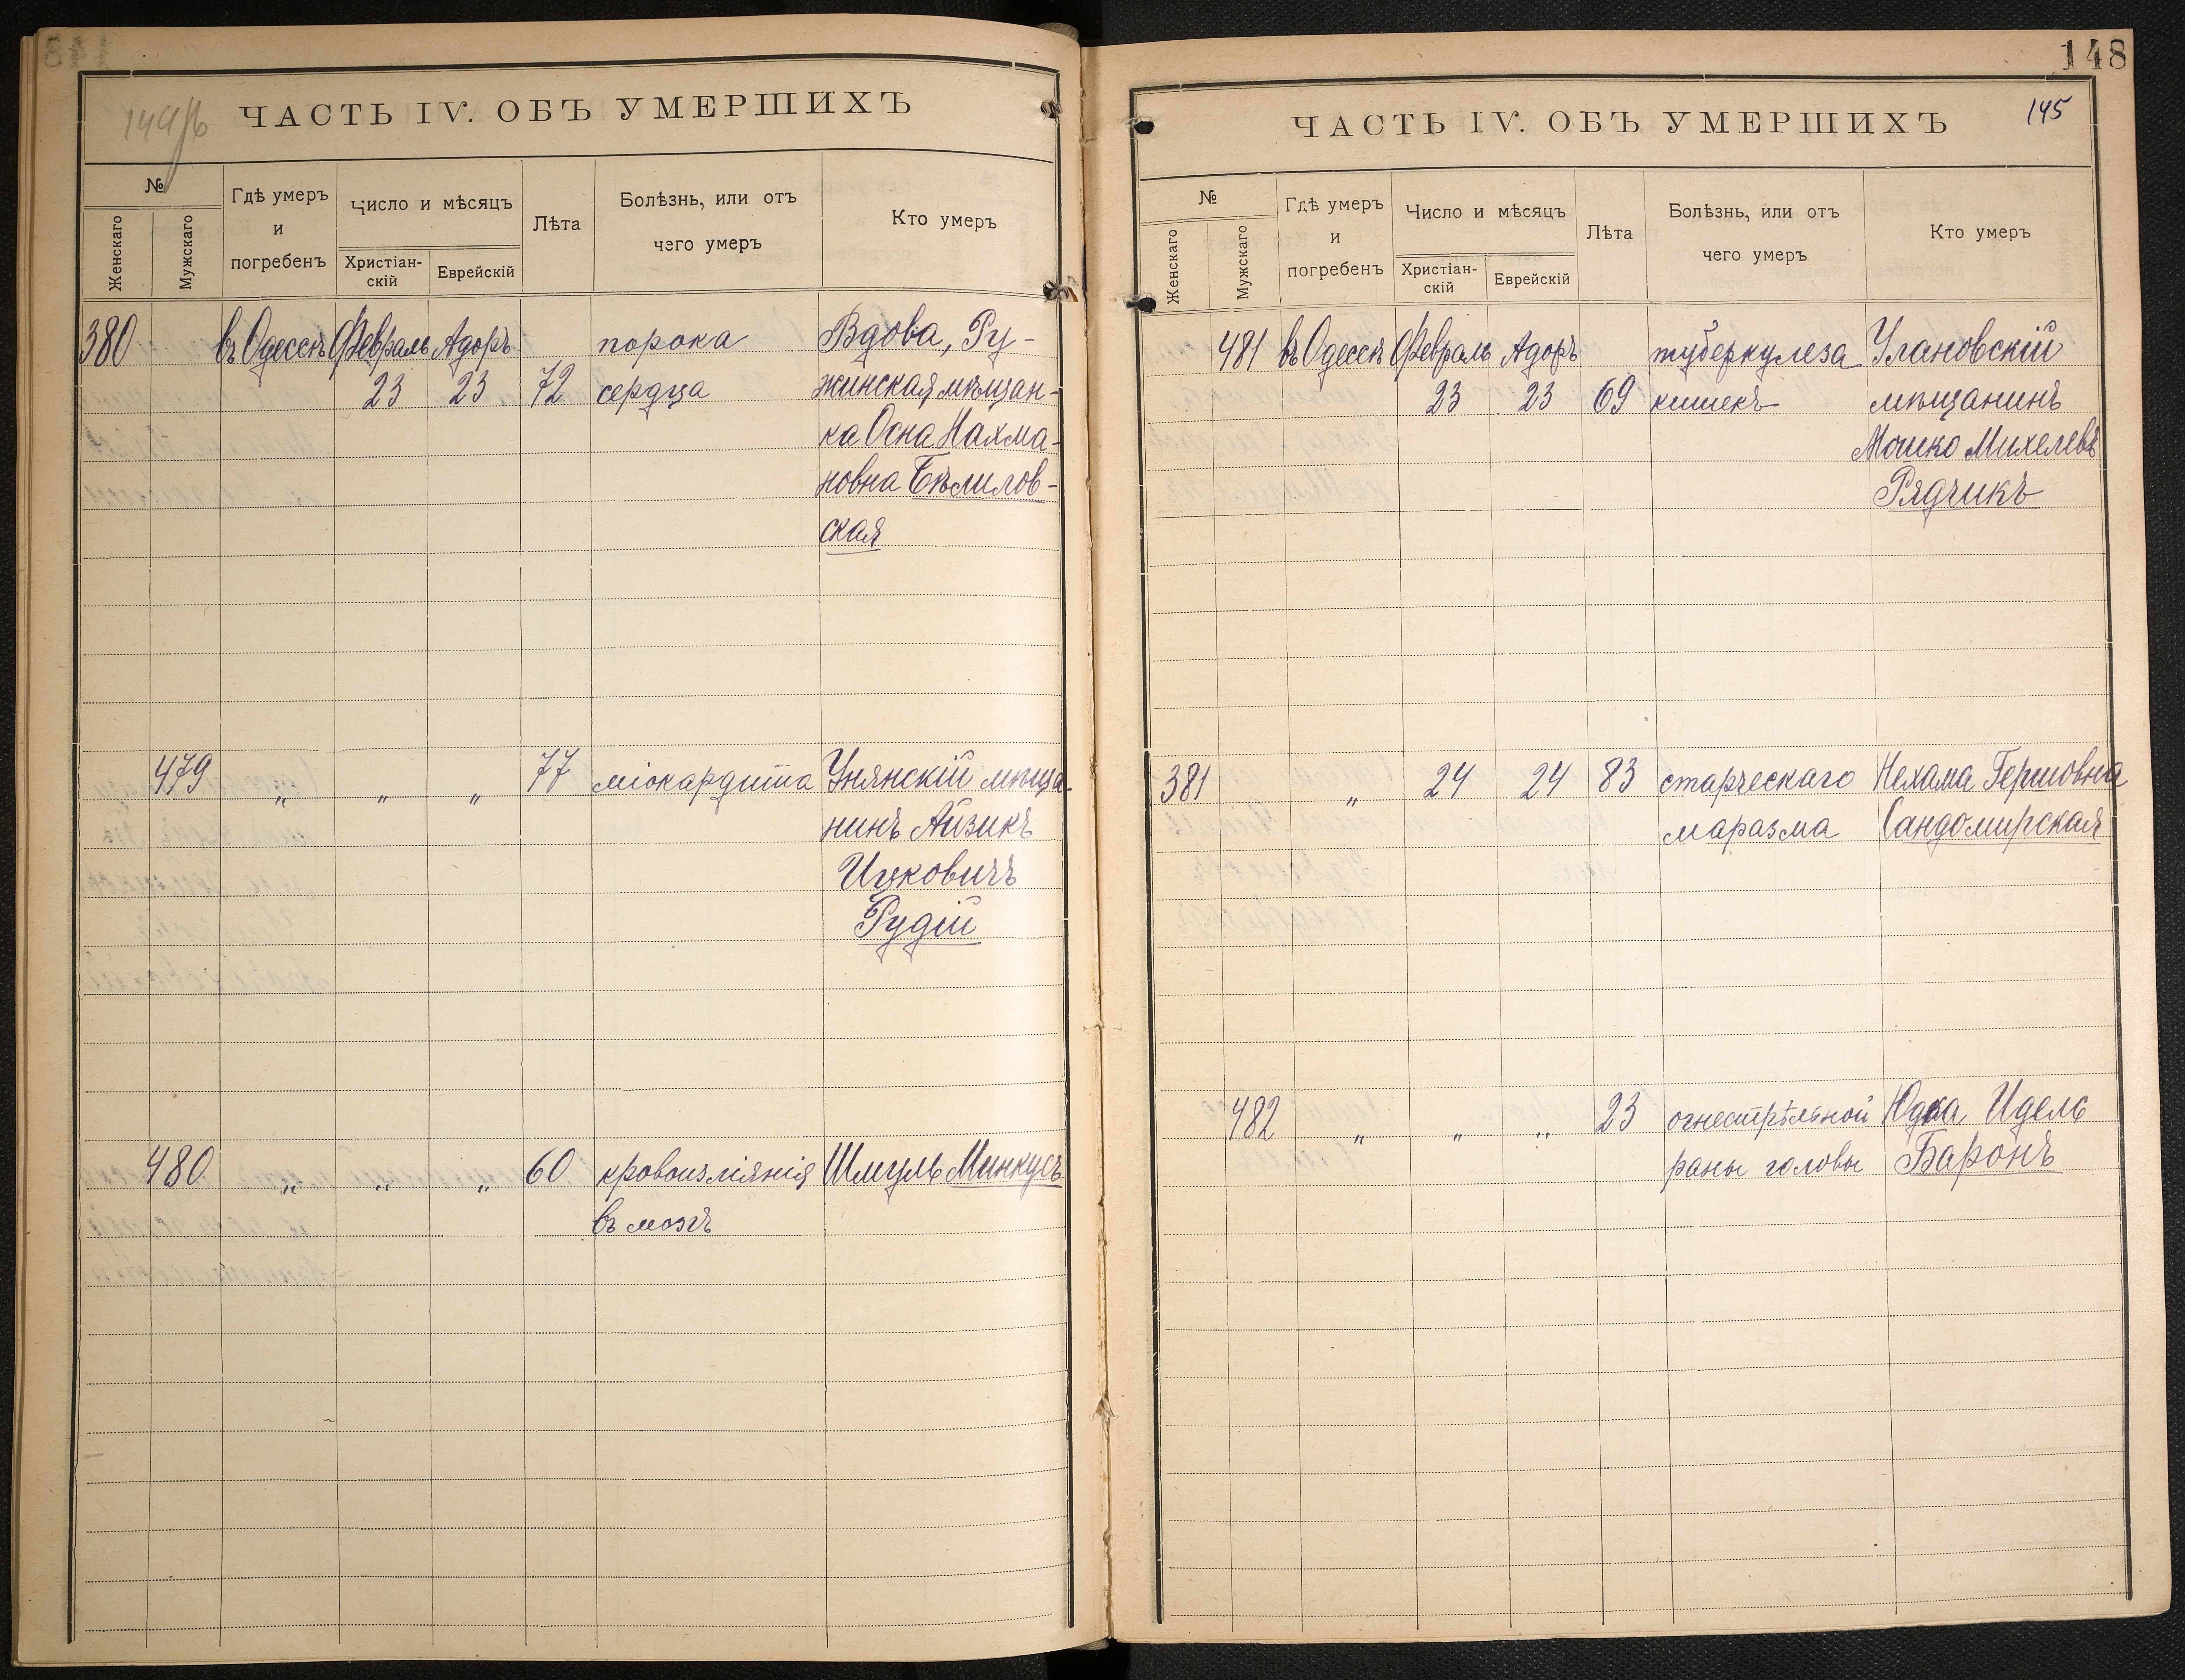 149
ЧАСТЬ IV. ОБЪ УМЕРШИХЪ
№
Женскаго
Мужскаго
Гдѣ умеръ
и
погребенъ
Число и мѣсяцъ
Христіан-
скій
Еврейскій
Лѣта
Болѣзнь, или отъ
чего умеръ
Кто умеръ
380 въ Одессѣ Февраль Адоръ порока Вдова, Ру-
23 23 72 сердца жинская мѣщан-
ка Осна Нахма-
новна Бѣлилов-
ская
479 „ „ „ 77 міокардита Унянскій мѣща-
нинъ Айзикъ
Ицковичъ
Рудій
480 „ „ „ 60 кровоизліянія Шмуль Минкусъ
въ мозгъ
148
145
ЧАСТЬ IV. ОБЪ УМЕРШИХЪ
№
Женскаго
Мужскаго
Гдѣ умеръ
и
погребенъ
Число и мѣсяцъ
Христіан-
скій
Еврейскій
Лѣта
Болѣзнь, или отъ
чего умеръ
Кто умеръ
481 въ Одессѣ Февраль Адоръ туберкулеза Улановскій
23 23 69 кишекъ мѣщанинъ
Мошко Михелевъ
Рядчикъ
381 „ 24 24 83 старческаго Нехама Гершовна
маразма Сандомирская
482 „ „ „ 23 огнестрѣльной Юдка Идель
раны головы Баронъ